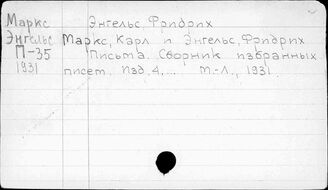 Маркс Энгельс, Фридрих
Энгельс Маркс, Карл и Энгельс, Фридрих
П-35 Письма. Сборник избранных
1931 писем. Изд. 4, ... М.-Л., 1931.